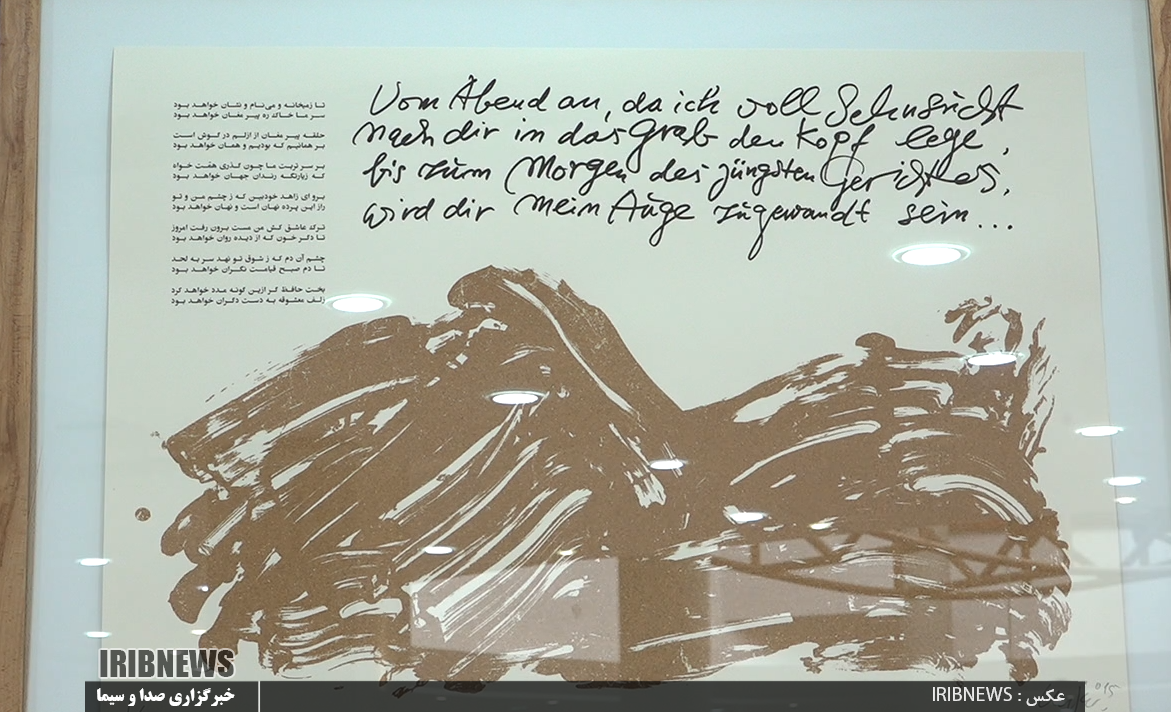 تا زمیخانه و می نام و نشان خواهد بود
سر ما خاک ره پیر مغان خواهد بود
حلقه پیر مغان از ازلم در گوش است
بر همانیم که بودیم و همان خواهد بود
بر سر تربت ما چون گذری همّت خواه
که زیارتگه رندان جهان خواهد بود
برو ای زاهد خودبین که ز چشم من و تو
راز این پرده نهان است و نهان خواهد بود
ترک عاشق کش من مست برون رفت امروز
تا دگر خون که از دیده روان خواهد بود
چشم آن دم که ز شوق تو نهد سر به لحد
تا دم صبح قیامت نگران خواهد بود
بخت حافظ گر ازین گونه مدد خواهد کرد
زلف معشوقه به دست دگران خواهد بود
Vom Abend an, da ich voll Sehnsucht
nach dir in das Grab den Kopf lege,
bis zum Morgen des jüngsten Gerichtes,
wird dir mein Auge zugewandt sein...
IRIBNEWS
خبرگزاری صدا و سیما
عکس : IRIBNEWS